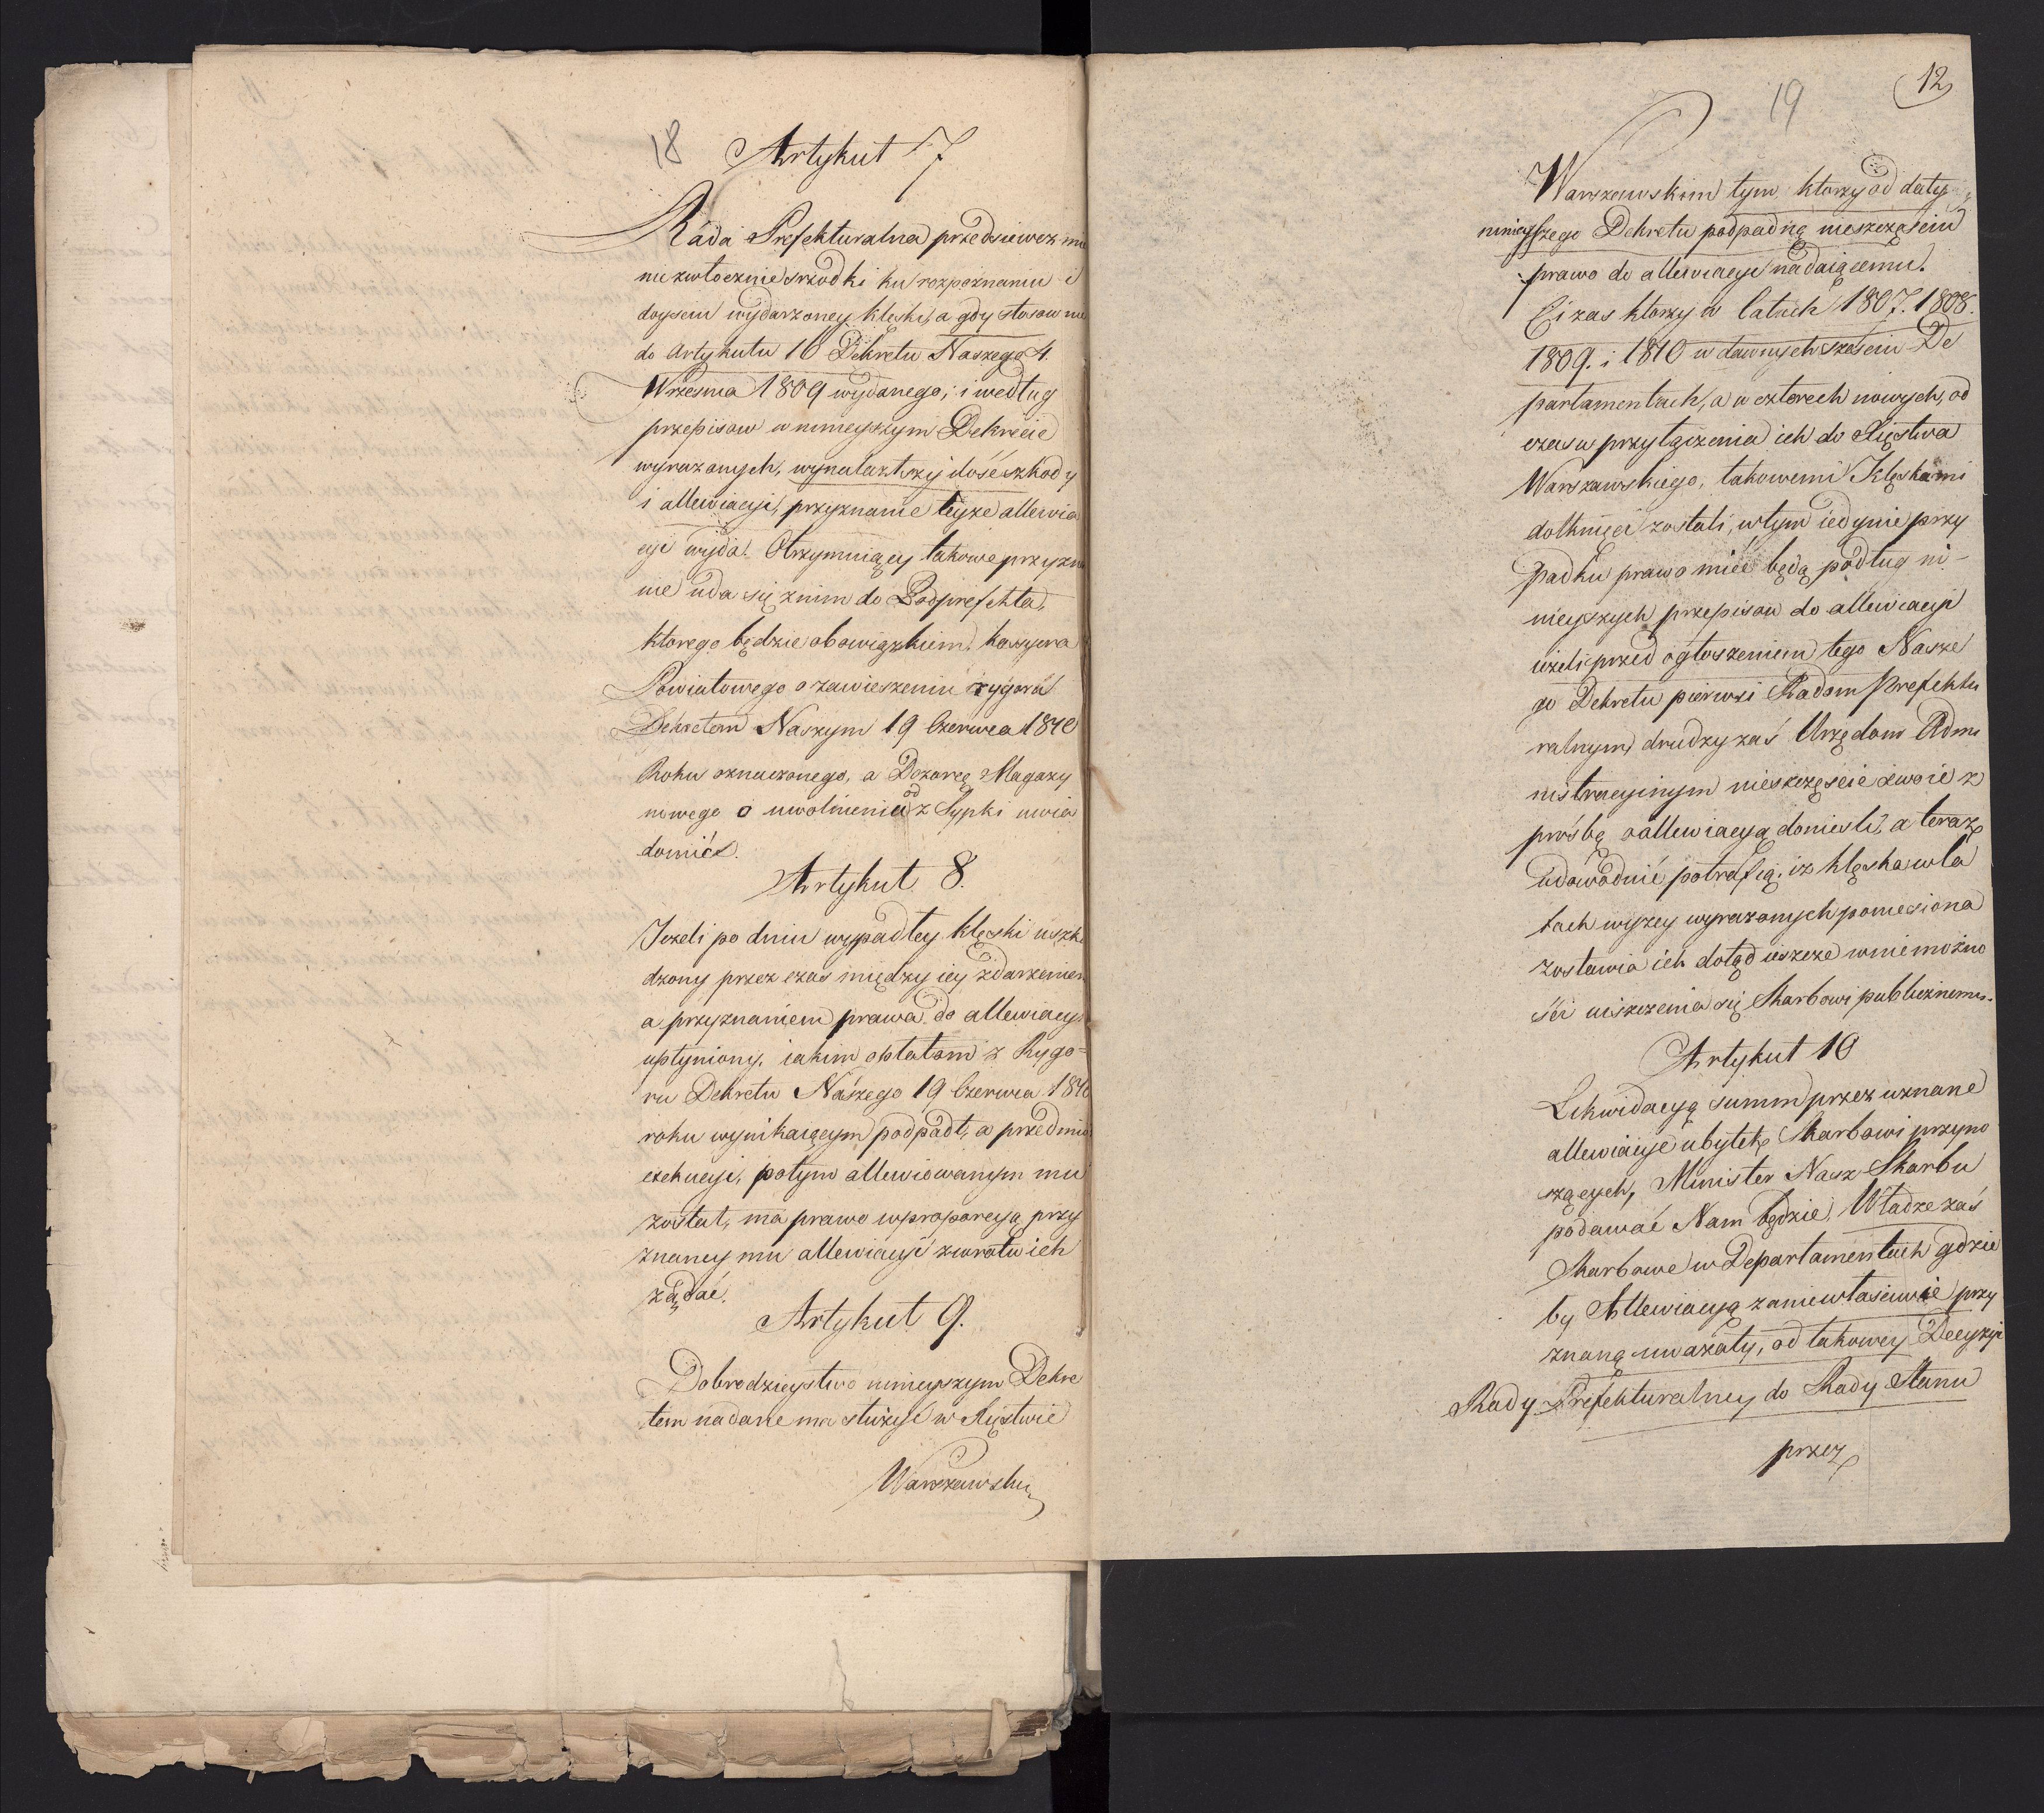 18
Artykuł 7
Rada Prefekturalna przedsiewezmie
niezwłocznie srzodki ku rozpoznaniu i
doyściu wydarzoney klęski, a gdy stosownie
do Artykułu 10 Dekretu Naszego 4.
Wrzesnia 1809 wydanego; i według
przepisow w ninieyszym Dekrecie
wyrazonych, wynalazłszy ilość szkody
i allewiacyi, przyznanie teyze allewia
cyi wyda. Otrzymuiący takowe przyzna
nie uda się z nim do Podprefekta,
ktorego będzie obowiązkiem, kassyera
Powiatowego o zawieszeniu rygoru
Dekretem Naszym 19 Czerwca 1810
Roku oznaczonego, a Dozorcę Magazy
nowego o uwolnieniu od z Sypki uwia
domić.
Artykuł 8.
Jezeli po dniu wypadłey klęski uszko
dzony przez czas między iey zdarzeniem
a przyznaniem prawa do allewiacyi
upłyniony, iakim opłatom z Rygo=
ru Dekretu Naszego 19 Czerwca 1810
roku wynikaiącym podpadł, a przedmio
exekucyi, potym allewiowanym mu
został, ma prawo w proporcyą przy
znaney mu allewiacyi zwrotu ich
ządać.
Artykuł 9.
Dobrodzieystwo ninieyszym Dekre
tem nadane ma służyć w Xięstwie
Warszawskim
19
12
Warszawskim tym ktorzy od daty
ninieyszego Dekretu podpadną nieszczęściu
prawo do allewiacyi nadaiącemu.
Ci zas ktorzy w latach 1807. 1808.
1809. i 1810 w dawnych sześciu De
partamentach, a w czterech nowych, od
czasu przyłączenia ich do Xięstwa
Warszawskiego, takowemi Klęskami
dotknięci zostali, w tym iedynie przy
padku prawo mieć będą podług ni-
nieyszych przepisow do allewiacyi
ieżeli przed ogłoszeniem tego Nasze
go Dekretu pierwsi Radom Prefektu
ralnym, drudzy zaś Urzędom Admi
nistracyinym nieszczęście swoie z
prośbą o allewiacyą donieśli, a teraz
udowodnić potrafią, iz klęska w la
tach wyzey wyrazonych poniesiona
zostawia ich dotąd ieszcze w niemożno
ści uiszczenia się Skarbowi publicznemu.
Artykuł 10
Likwidacyą summ przez uznane
allewiacye ubytek Skarbowi przyno
szących, Minister Nasz Skarbu
podawać Nam będzie, Władze zaś
Skarbowe w Departamentach gdzie
by Allewiacyą za niewłaściwie przy
znaną uważały, od takowey Decyzyi
Rady Prefekturalney do Rady Stanu
przez